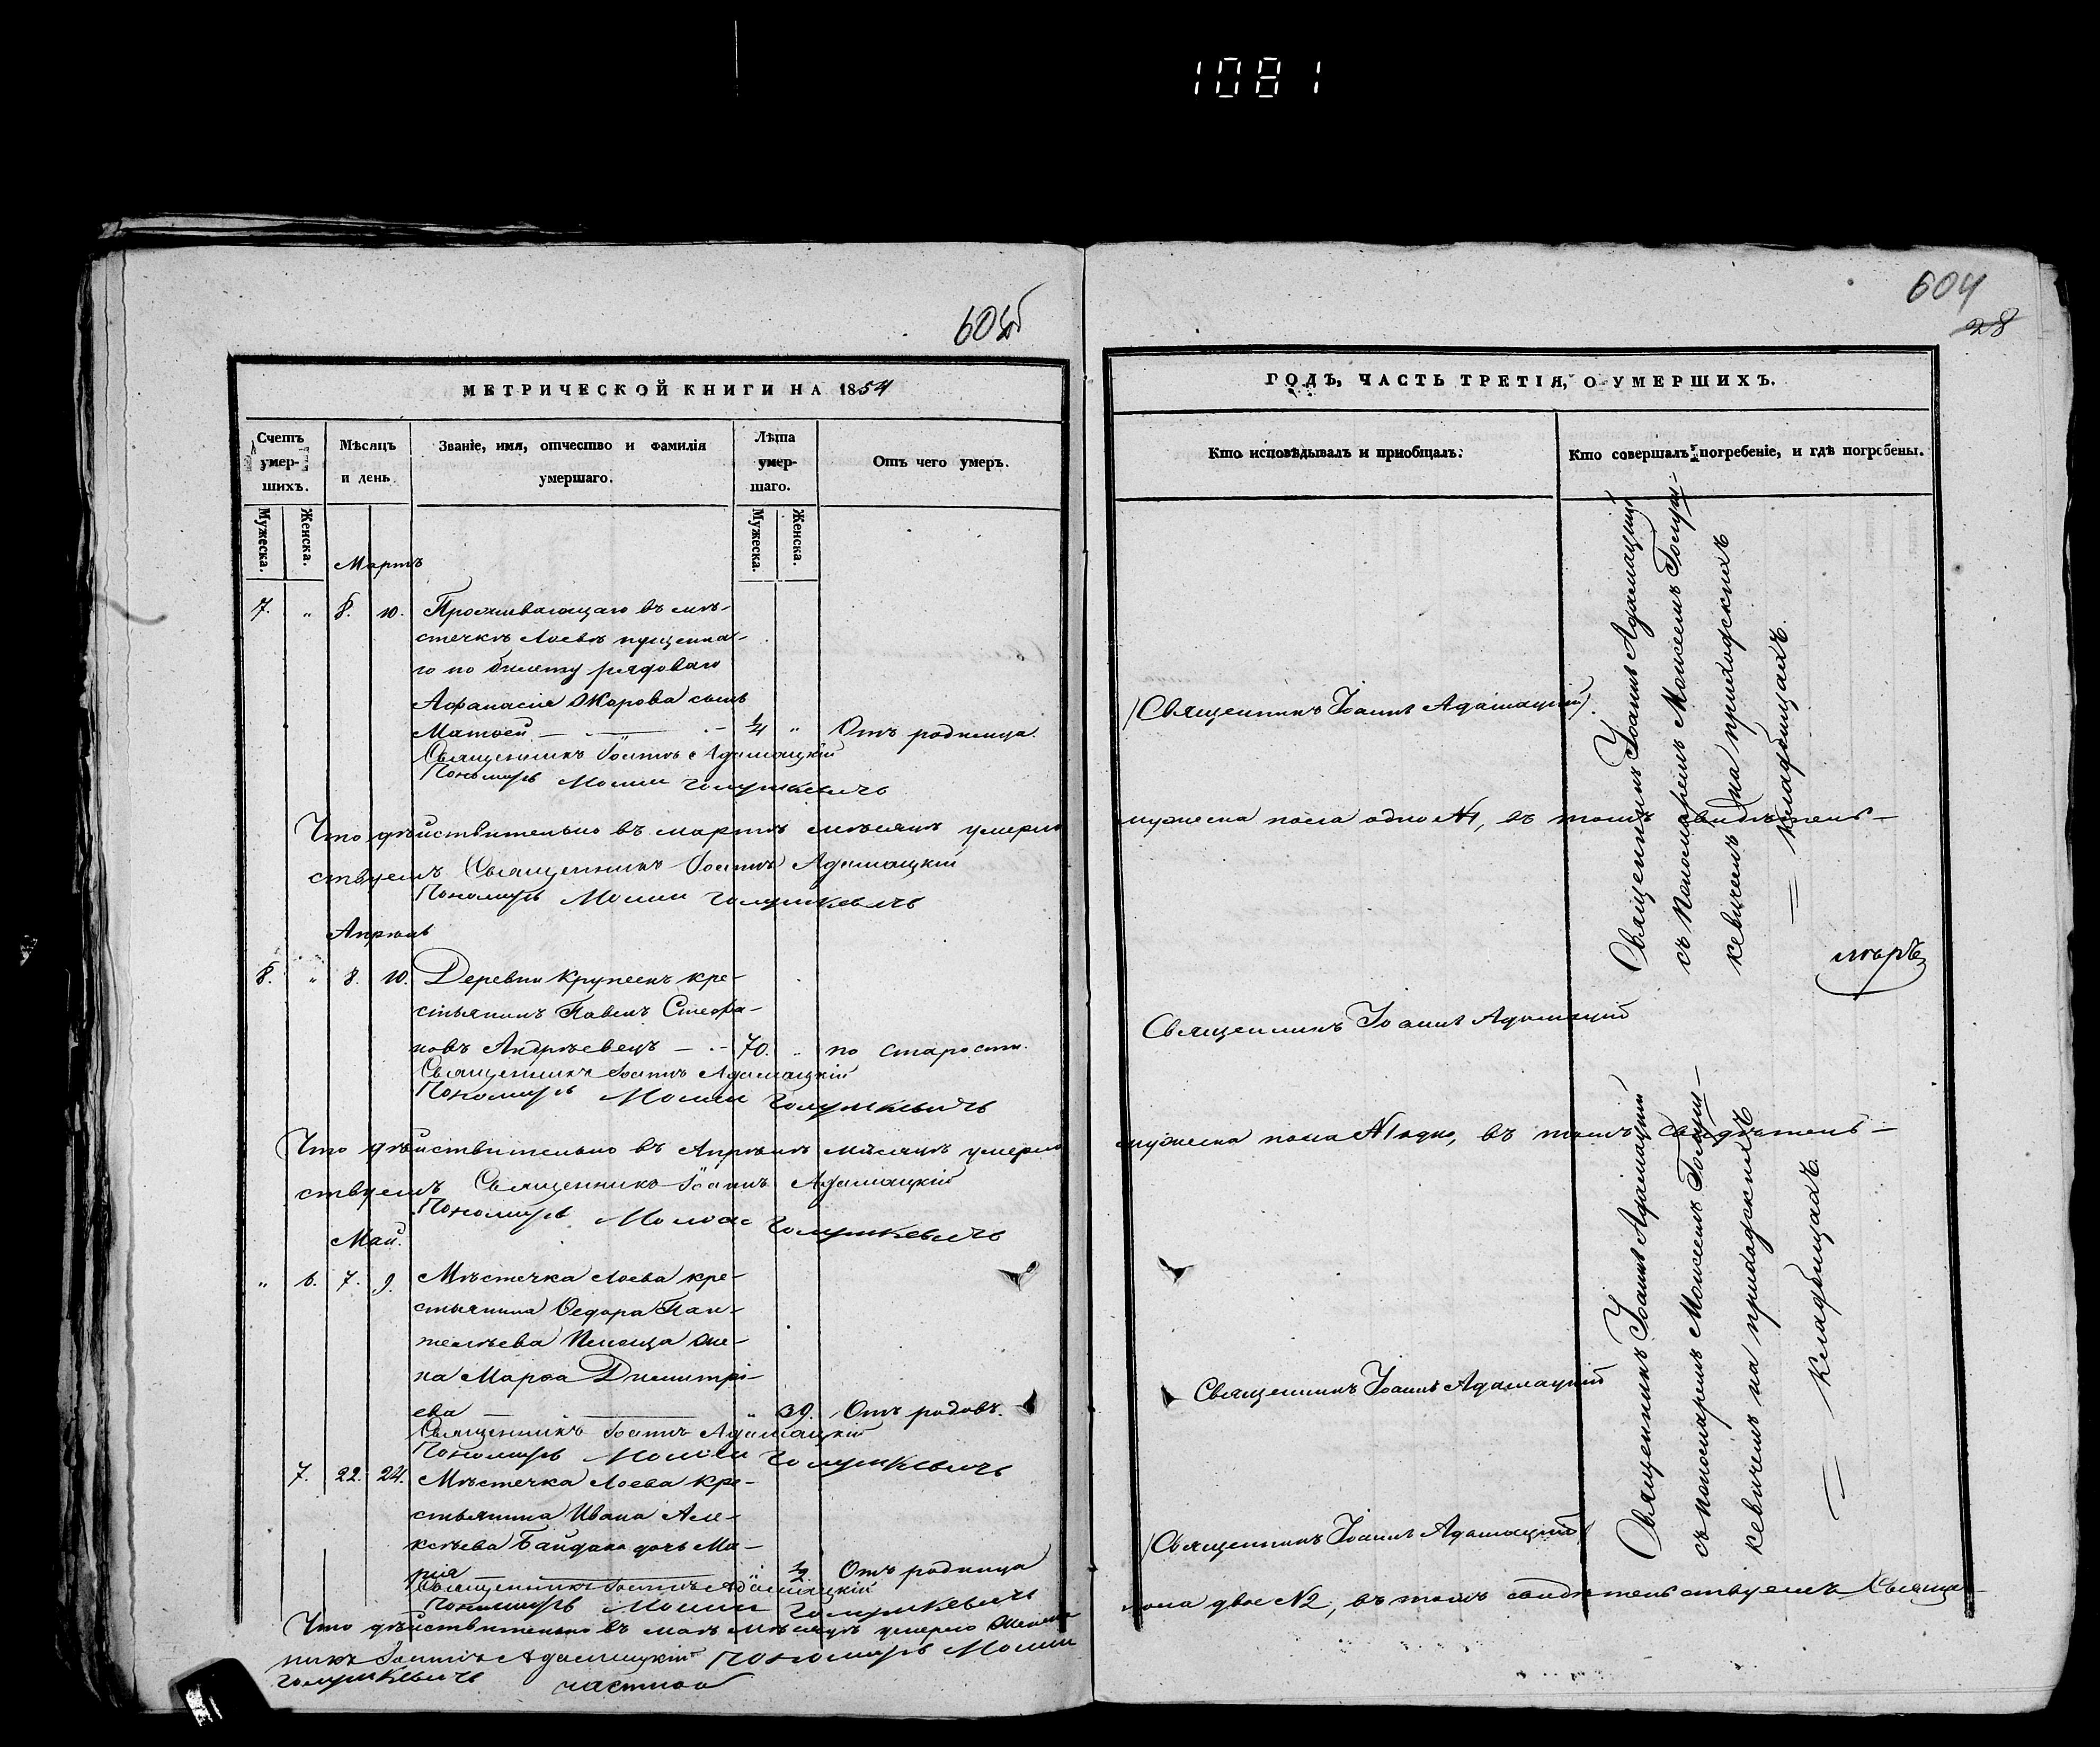 1081
604
28
МЕТРИЧЕСКОЙ КНИГИ НА 1854
Счетъ умер-шихъ.
Мѣсяцъ и день.
Званіе, имя, отчество и фамилія умершаго.
Лѣта умер-шаго.
Отъ чего умеръ.
Мужеска.
Женска.
Мужеска.
Женска.
Мартъ
7. „ 8. 10. Проживающаго въ мѣ-
стечкѣ Лоевѣ пущенна-
го по билету рядоваго
Афанасія Жарова сынъ
Матѳей — 1/4 „ Отъ родимца.
Священникъ Іоаннъ Адамацкій
Пономарь Моисей Голушкевичъ
Что дѣйствительно въ мартѣ мѣсяцѣ умерло
ствуемъ Священникъ Іоаннъ Адамацкій
Пономарь Моисей Голушкевичъ
Апрѣль
8. „ 8. 10. Деревни Крупеекъ кре-
стьянинъ Павелъ Стефа-
новъ Андрѣевецъ — 70. „ по старости.
Священникъ Іоаннъ Адамацкій
Пономарь Моисей Голушкевичъ
Что дѣйствительно въ Апрѣлѣ мѣсяцѣ умерло
ствуемъ Священникъ Іоаннъ Адамацкій
Пономарь Голушкевичъ
Май.
„ 6. 7. 9. Мѣстечка Лоева кре-
стьянина Ѳедора Пан-
телѣева же-
на Марѳа Димитрі-
ева — „ 39. Отъ родовъ.
Священникъ Іоаннъ Адамацкій
Пономарь Моисей Голушкевичъ
7. 22. 24. Мѣстечка Лоева кре-
стьянина Ивана Але-
ксѣева Байдака дочь Ма-
рія „ 1/2 Отъ родимца
Священникъ Іоаннъ Адамацкій
Пономарь Моисей Голушкевичъ
Что дѣйствительно въ маѣ мѣсяцѣ умерло женска
никъ Іоаннъ Адамацкій Пономарь Моисей
Голушкевичъ
ГОДЪ, ЧАСТЬ ТРЕТІЯ, О УМЕРШИХЪ.
Кто исповѣдывалъ и пріобщалъ.
Кто совершалъ погребеніе, и гдѣ погребены.
Священникъ Іоаннъ Адамацкій
Священникъ Іоаннъ Адамацкій
съ Пономаремъ Моисеемъ Голуш-
кевичемъ на приходскихъ
кладбищахъ.
мужеска пола одно №1, въ томъ свидѣтель-
Священникъ Іоаннъ Адамацкій
мужеска пола №1 одно, въ томъ свидѣтель-
Священникъ Іоаннъ Адамацкій
Священникъ Іоаннъ Адамацкій
Священникъ Іоаннъ Адамацкій
съ пономаремъ Моисеемъ Голуш-
кевичемъ на приходскихъ
кладбищахъ.
пола двое №2, въ томъ свидѣтельствуемъ Священ-